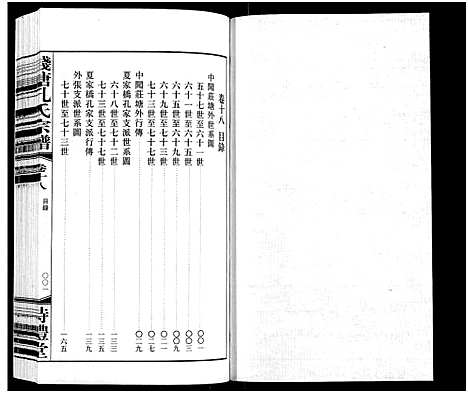 卷十八 目錄
中閘莊塘外世系圖
五十七世至六十一世 〇〇一
六十一世至六十五世 〇〇三
六十五世至六十九世 〇〇九
六十九世至七十三世 〇二一
七十三世至七十七世 〇二七
中閘莊塘外行傳 〇二九
夏家橋孔家支派世系圖
六十八世至七十二世 一三三
七十三世至七十七世
夏家橋孔家支派行傳 一三九
外張支派世系圖
七十世至七十三世 一六五
孔氏宗譜
卷十八
目錄
〇〇一
詩禮堂